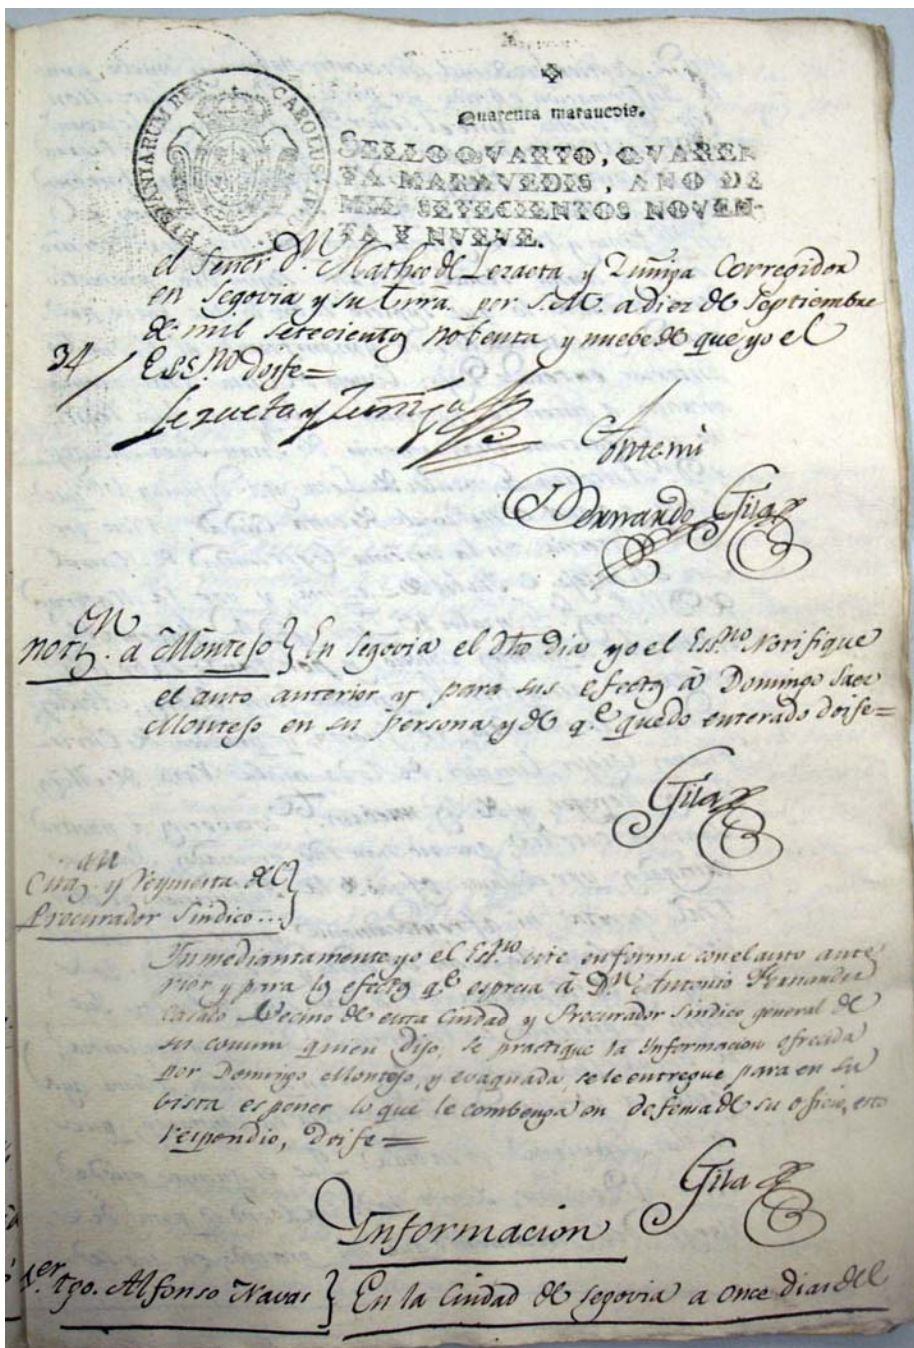 Quarenta marauedis.
SELLO QVARTO, QVAREN
TA MARAVEDIS, AÑO DE
MIL SETECIENTOS NOVEN-
TA Y NVEVE.
HISPANIARUM REX CAROLUS
el Señor Dn. Matheo de Lezaeta y Zuñiga Corregidor
en Segovia y su tierra por S.M. a diez de Septiembre
de mil setecientos nobenta y nuebe de que yo el
34
Essno doife=
Lezaeta y Zuñiga
Antemi
Bernardo Gila
Noton. a Montejo } En Segovia el dho dia yo el Essno Notifique
el auto anterior y para sus efectos â Domingo Saez
Montejo en su persona y de qe quedo enterado doife=
Gila
Citazan y respuesta del
Procurador Sindico... }
Inmediantamente yo el Essno cite en forma con el auto ante-
rior y para los efectos qe espresa â Dn Antonio Fernandez
Casalo Vecino de esta Ciudad y Procurador Sindico general de
su comun quien dijo, se practique la Ynformacion ofrecida
por Domingo Montejo, y evaquada, se le entregue para en su
vista esponer lo que le combenga en defensa de su oficio, esto
respondio, doife=
Gila
Informacion
1er. tgo. Alfonso Navas } En la Ciudad de Segovia a once dias del